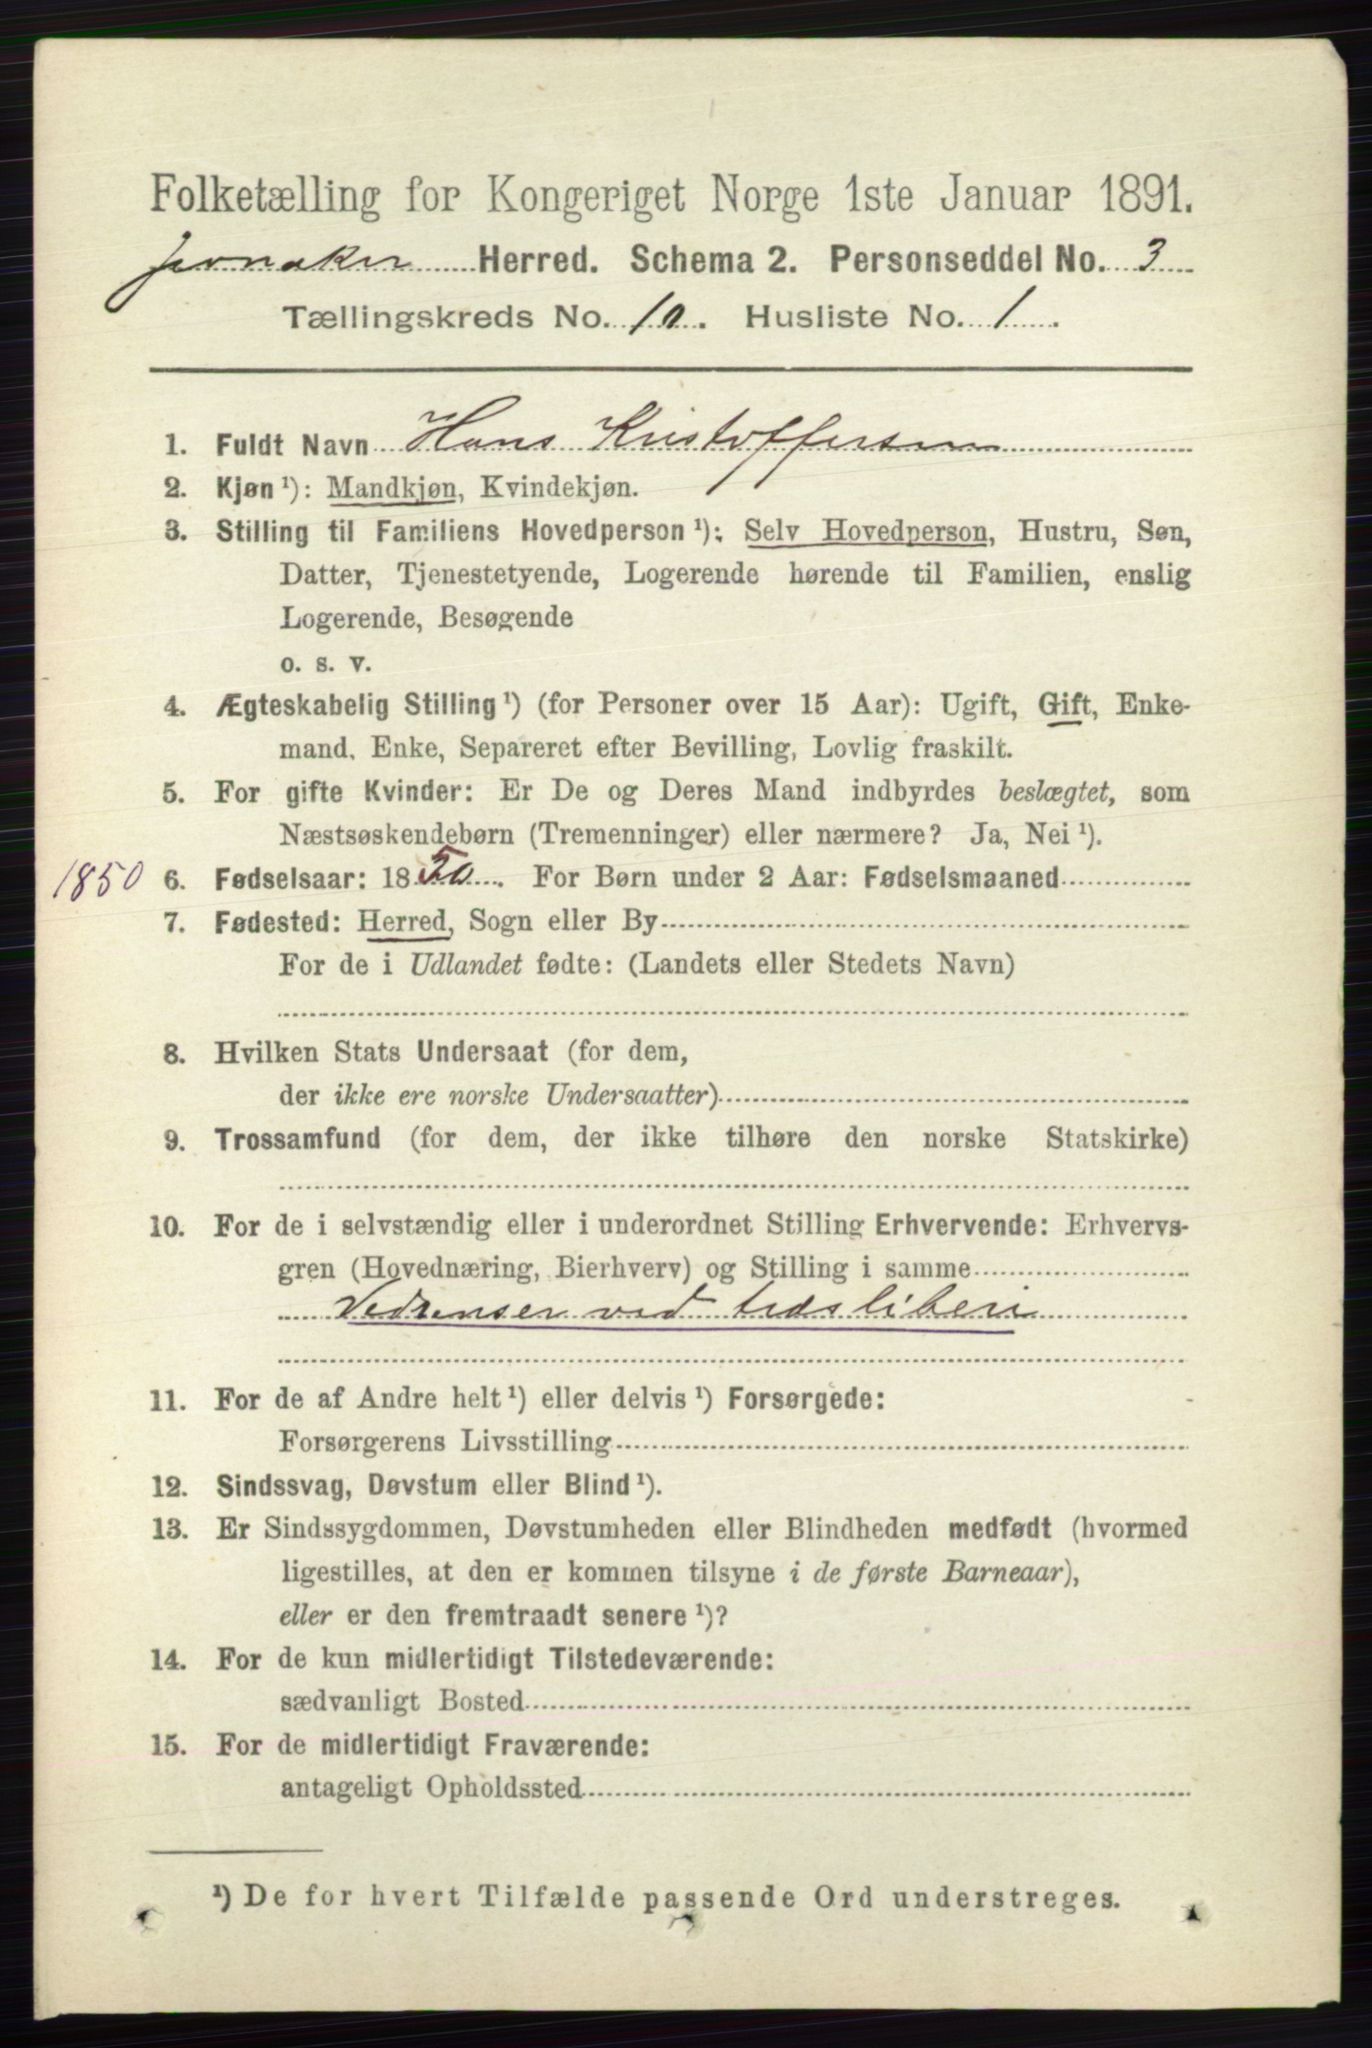 Folketælling for Kongeriget Norge 1ste Januar 1891.
Jevnaker Herred. Schema 2. Personseddel No. 3
Tællingskreds No. 10. Husliste No. 1.
1. Fuldt Navn Hans Kristoffersen
2. Kjøn ¹): Mandkjøn, Kvindekjøn.
3. Stilling til Familiens Hovedperson ¹): Selv Hovedperson, Hustru, Søn,
Datter, Tjenestetyende, Logerende hørende til Familien, enslig
Logerende, Besøgende
o. s. v.
4. Ægteskabelig Stilling ¹) (for Personer over 15 Aar): Ugift, Gift, Enke-
mand, Enke, Separeret efter Bevilling, Lovlig fraskilt.
5. For gifte Kvinder: Er De og Deres Mand indbyrdes beslægtet, som
Næstsøskendebørn (Tremenninger) eller nærmere? Ja, Nei ¹).
1850 6. Fødselsaar: 1850. For Børn under 2 Aar: Fødselsmaaned
7. Fødested: Herred, Sogn eller By
For de i Udlandet fødte: (Landets eller Stedets Navn)
8. Hvilken Stats Undersaat (for dem,
der ikke ere norske Undersaatter)
9. Trossamfund (for dem, der ikke tilhøre den norske Statskirke)
10. For de i selvstændig eller i underordnet Stilling Erhvervende: Erhvervs-
gren (Hovednæring, Bierhverv) og Stilling i samme
Vedrenser ved træsliberi
11. For de af Andre helt ¹) eller delvis ¹) Forsørgede:
Forsørgerens Livsstilling
12. Sindssvag, Døvstum eller Blind ¹).
13. Er Sindssygdommen, Døvstumheden eller Blindheden medfødt (hvormed
ligestilles, at den er kommen tilsyne i de første Barneaar),
eller er den fremtraadt senere ¹)?
14. For de kun midlertidigt Tilstedeværende:
sædvanligt Bosted
15. For de midlertidigt Fraværende:
antageligt Opholdssted
¹) De for hvert Tilfælde passende Ord understreges.